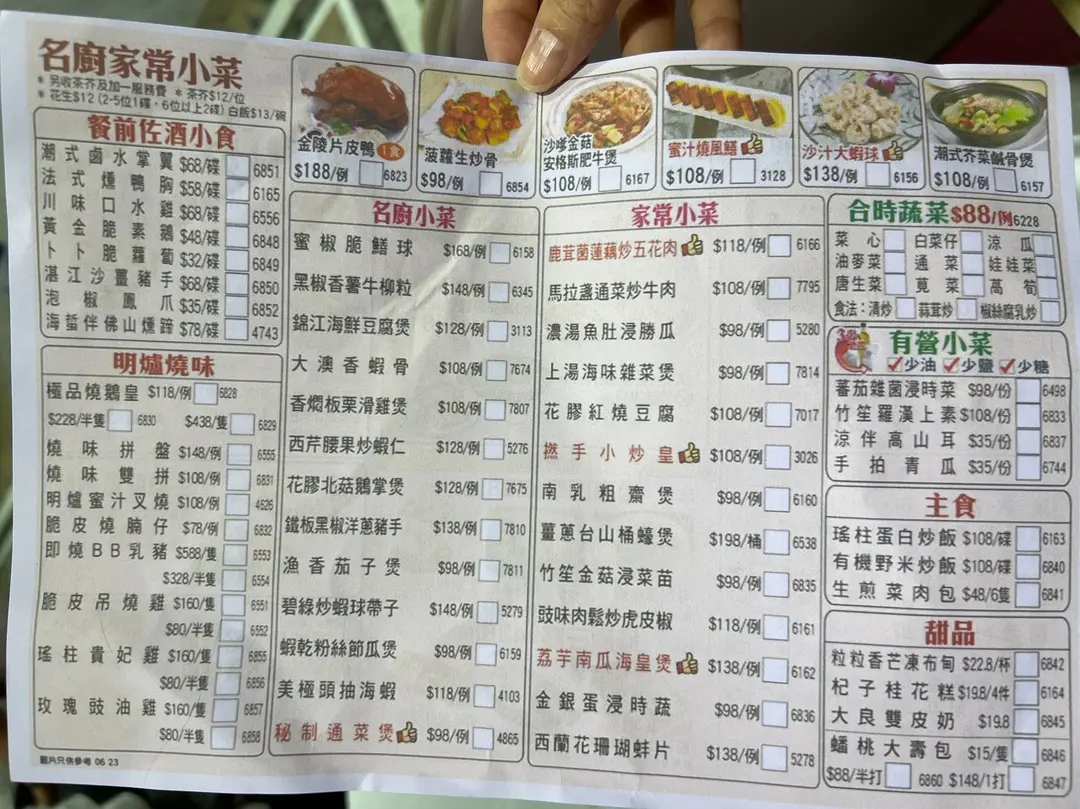 名廚家常小菜
* 另收茶芥及加一服務費 * 茶芥$12/位
* 花生$12 (2-5位1碟，6位以上2碟) 白飯$13/碗
金陵片皮鴨 1食
$188/例 6823
菠蘿生炒骨
$98/例 6854
沙嗲金菇
安格斯肥牛煲
$108/例 6167
蜜汁燒風鱔
$108/例 3128
沙汁大蝦球
$138/例 6156
潮式芥菜鹹骨煲
$108/例 6157
餐前佐酒小食
潮式鹵水掌翼 $68/碟 6851
法式燻鴨胸 $58/碟 6165
川味口水雞 $68/碟 6556
黃金脆素鵝 $48/碟 6848
卜卜脆蘿蔔 $32/碟 6849
湛江沙薑豬手 $68/碟 6850
泡椒鳳爪 $35/碟 6852
海蜇伴佛山燻蹄 $78/碟 4743
明爐燒味
極品燒鵝皇 $118/例 6828
$228/半隻 6830 $438/隻 6829
燒味拼盤 $148/例 6555
燒味雙拼 $108/例 6831
明爐蜜汁叉燒 $108/例 4626
脆皮燒腩仔 $78/例 6832
即燒BB乳豬 $588/隻 6553
$328/半隻 6554
脆皮吊燒雞 $160/隻 6551
$80/半隻 6552
瑤柱貴妃雞 $160/隻 6855
$80/半隻 6856
玫瑰豉油雞 $160/隻 6857
$80/半隻 6858
圖片只供參考 06 23
名廚小菜
蜜椒脆鱔球 $168/例 6158
黑椒香薯牛柳粒 $148/例 6345
錦江海鮮豆腐煲 $128/例 3113
大澳香蝦骨 $108/例 7674
香燜板栗滑雞煲 $108/例 7807
西芹腰果炒蝦仁 $128/例 5276
花膠北菇鵝掌煲 $128/例 7675
鐵板黑椒洋蔥豬手 $138/例 7810
漁香茄子煲 $98/例 7811
碧綠炒蝦球帶子 $148/例 5279
蝦乾粉絲節瓜煲 $98/例 6159
美極頭抽海蝦 $118/例 4103
秘制通菜煲 $98/例 4865
家常小菜
鹿茸菌蓮藕炒五花肉 $118/例 6166
馬拉盞通菜炒牛肉 $108/例 7795
濃湯魚肚浸勝瓜 $98/例 5280
上湯海味雜菜煲 $98/例 7814
花膠紅燒豆腐 $108/例 7017
撚手小炒皇 $108/例 3026
南乳粗齋煲 $98/例 6160
薑蔥台山桶蠔煲 $198/桶 6538
竹笙金菇浸菜苗 $98/例 6835
豉味肉鬆炒虎皮椒 $118/例 6161
荔芋南瓜海皇煲 $138/例 6162
金銀蛋浸時蔬 $98/例 6836
西蘭花珊瑚蚌片 $138/例 5278
合時蔬菜$88/例6228
菜心 白菜仔 涼瓜
油麥菜 通菜 娃娃菜
唐生菜 莧菜 萵筍
食法：清炒 蒜茸炒 椒絲腐乳炒
有營小菜
少油 少鹽 少糖
蕃茄雜菌浸時菜 $98/份 6498
竹笙羅漢上素 $108/份 6833
涼伴高山耳 $35/份 6837
手拍青瓜 $35/份 6744
主食
瑤柱蛋白炒飯 $108/碟 6163
有機野米炒飯 $108/碟 6840
生煎菜肉包 $48/6隻 6841
甜品
粒粒香芒凍布甸 $22.8/杯 6842
杞子桂花糕 $19.8/4件 6164
大良雙皮奶 $19.8 6845
蟠桃大壽包 $15/隻 6846
$88/半打 6860 $148/1打 6847